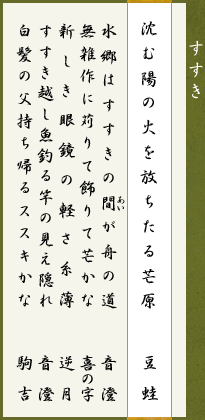 すすき
沈む陽の火を放ちたる芒原 豆蛙
水郷はすすきの間が舟の道 音澄
あい
無雑作に苅りて飾りて芒かな 喜の字
新しき眼鏡の軽さ糸薄 逆月
すすき越し魚釣る竿の見え隠れ 音澄
白髪の父持ち帰るススキかな 駒吉